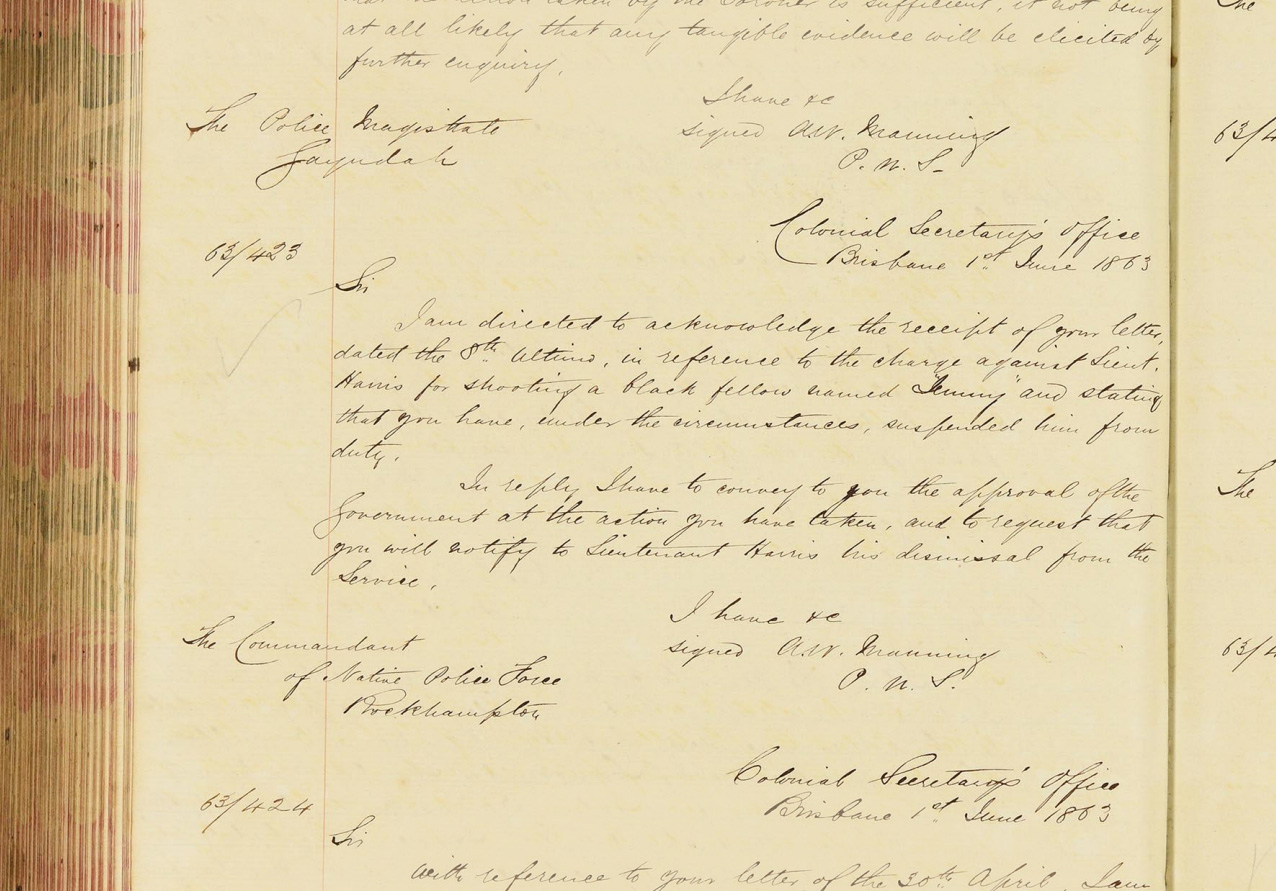 that the action taken by the Coroner is sufficient, it not being
at all likely that any tangible evidence will be elicited by
further enquiry.
I have &c
The Police Magistrate
signed A.W. Manning
Gayndah
P. U. S.
Colonial Secretary's Office
63/423
Brisbane 1st June 1863
Sir
I am directed to acknowledge the receipt of your letter,
dated the 8th Ultimo, in reference to the charge against Lieut.
Harris for shooting a black fellow named "Jemmy" and stating
that you have, under the circumstances, suspended him from
duty.
In reply I have to convey to you the approval of the
Government at the action you have taken, and to request that
you will notify to Lieutenant Harris his dismissal from the
Service.
I have &c
The Commandant
signed A.W. Manning
of Native Police Force
P. U. S.
Rockhampton
Colonial Secretary's Office
63/424
Brisbane 1st June 1863
Sir
With reference to your letter of the 30th April, I am
The
63/4
The
63/4